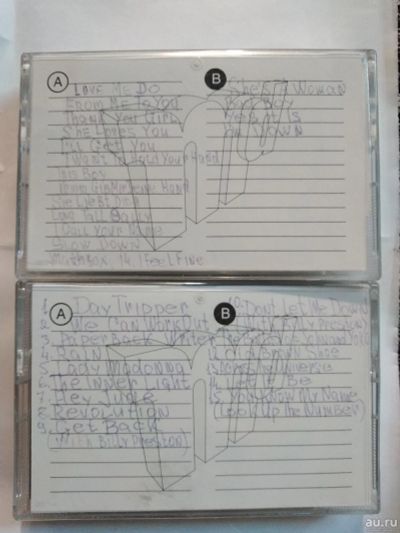 A
B
Love Me Do
From Me To You
Thank You Girl
She Loves You
I'll Get You
I Want To Hold Your Hand
This Boy
Slow Down
Matchbox, 14. I Feel Fine
She's A Woman
Bad Boy
Yes It Is
I'm Down
Long Tall Sally
I Call Your Name
A
B
1. Day Tripper
2. We Can Work Out
3. Paper Back Writer
4. Rain
5. Lady Madonna
6. The Inner Light
7. Hey Jude
8. Revolution
9. Get Back
(With Billy Preston)
10. Don't Let Me Down
12. Old Brown Shoe
13. Across The Universe
14. Let It Be
15. You Know My Name
(Look Up The Number)
au.ru